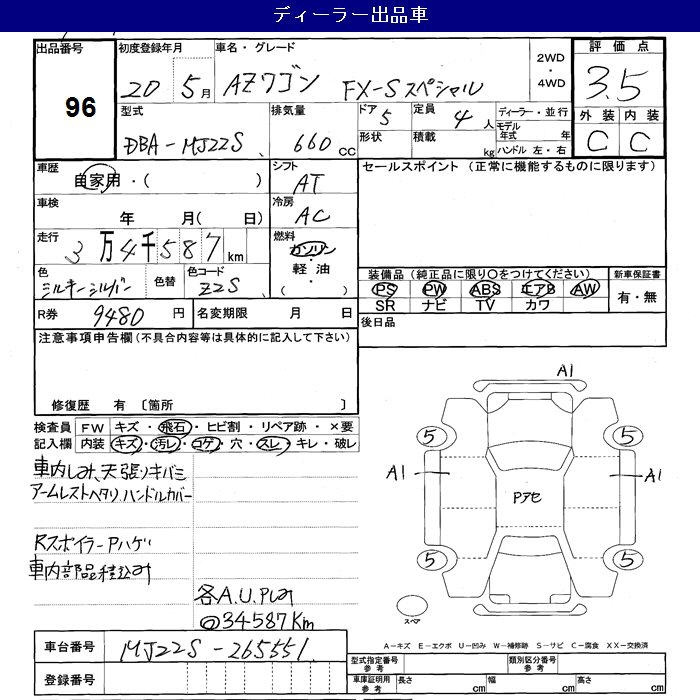 ディーラー出品車
出品番号 96
初度登録年月 20 5月
車名・グレード AZワゴン FX-Sスペシャル
2WD・4WD
評価点 3.5
外装 C 内装 C
型式 DBA-MJ22S
排気量 660 CC
ドア 5 定員 4人
形状 積載 kg
ディーラー・並行
モデル年式 年
ハンドル 左・右
車歴 自家用・( )
シフト AT
車検 年 月( 日)
冷房 AC
走行 3万4千587km
燃料 ガソリン・軽油・( )
色 シルキーシルバー 色替 色コード Z2S
R券 9480円 名変期限 月 日
セールスポイント (正常に機能するものに限ります)
装備品(純正品に限り○をつけてください) 新車保証書
PS PW ABS エアB AW 有・無
SR ナビ TV カワ
後日品
注意事項申告欄(不具合内容等は具体的に記入して下さい)
修復歴 有 〔箇所 〕
検査員記入欄
FW キズ・飛石・ヒビ割・リペア跡・×要
内装 キズ・汚レ・コゲ・穴・スレ・キレ・破レ
車内しみ、天張りキバミ
アームレストヘタリ ハンドルカバー
RスポイラーPハゲ
車内部品積込み
各A.U.Pしみ
@34587Km
A1
5 5
A1 Pアセ A1
5 5
スペア
A-キズ E-エクボ U-凹み W-補修跡 S-サビ C-腐食 XX-交換済
車台番号 MJ22S-265551
登録番号
型式指定番号参考 類別区分番号参考
車庫証明用参考 長さ cm 幅 cm 高さ cm